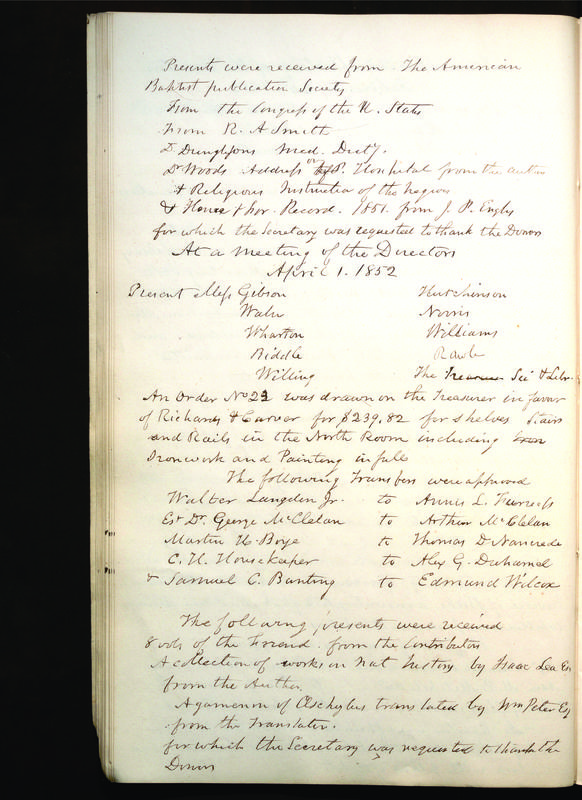 Presents were received from The American
Baptist publication Society
From the Congress of the U. States
From R. A Smith
Dr Dunglisons Med. Dicty.
Dr Woods Address on P. Hospital from the author
& Religious Instruction of the Negroes
& Hor. Record. 1851. from J. P. Engles
for which the Secretary was requested to thank the Donors
At a meeting of the Directors
April 1. 1852
Present Mess Gibson Hutchinson
Waln Norris
Wharton Williams
Biddle Rawle
Willing The Sec & Libr.
An Order No 22 was drawn on the Treasurer in favor
of Richards & Carver for $239,82 for shelves Stairs
and Rails in the North Room including
Ironwork and Painting in full
The following Transfers were approved
Walter Langdon Jr. to Annis L. Furness
Est Dr. George McClelan to Arthur McClelan
Martin H. Boye to Thomas D Nancrede
C. H. Housekeeper to Alex G. Duhamel
& Samuel C. Bunting to Edmund Wilcox
The following presents were received
8 vols of the Friend from the Contributors
A collection of works on Nat history by Isaac Lea Es
from the Author.
Agamemnon of Æschylus translated by Wm Peter Esq
from the Translator.
for which the Secretary was requested to thank the
Donors